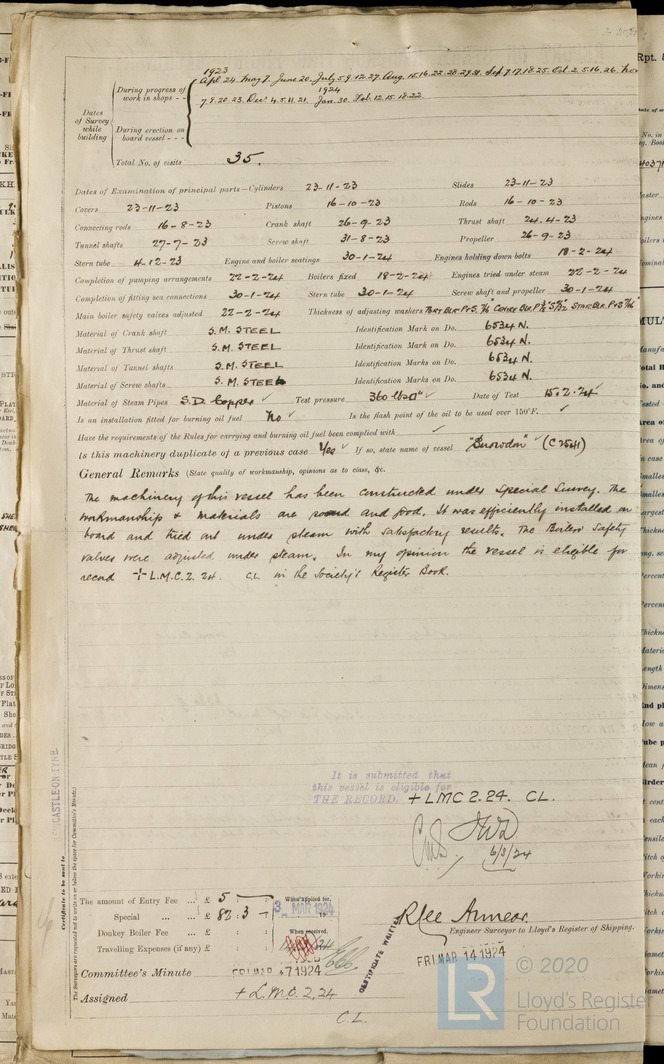 1923
Apl. 24. May 7. June 20. July 5.9.12.27. Aug. 15.16.22.28.29.31. Sep 7.17.18.25. Oct. 2.5.16.26. Nov
During progress of work in shops - -
1924
7.9.20.23. Dec. 4.5.11.21. Jan. 30. Feb. 12.15.18.22.
Dates of Survey while building
During erection on board vessel - - -
Total No. of visits 35.
Dates of Examination of principal parts—Cylinders 23-11-23 Slides 23-11-23
Covers 23-11-23 Pistons 16-10-23 Rods 16-10-23
Connecting rods 16-8-23 Crank shaft 26-9-23 Thrust shaft 24-4-23
Tunnel shafts 27-7-23 Screw shaft 31-8-23 Propeller 26-9-23
Stern tube 4-12-23 Engine and boiler seatings 30-1-24 Engines holding down bolts 18-2-24
Completion of pumping arrangements 22-2-24 Boilers fixed 18-2-24 Engines tried under steam 22-2-24
Completion of fitting sea connections 30-1-24 Stern tube 30-1-24 Screw shaft and propeller 30-1-24
Main boiler safety valves adjusted 22-2-24 Thickness of adjusting washers
Material of Crank shaft S.M. STEEL Identification Mark on Do. 6534 N.
Material of Thrust shaft S.M. STEEL Identification Mark on Do. 6534 N.
Material of Tunnel shafts S.M. STEEL Identification Marks on Do. 6534 N.
Material of Screw shafts S.M. STEEL Identification Marks on Do. 6534 N.
Material of Steam Pipes S.D. Copper ✓ Test pressure 360 lbs□" ✓ Date of Test 15.2.24 ✓
Is an installation fitted for burning oil fuel No ✓ Is the flash point of the oil to be used over 150°F. ✓
Have the requirements of the Rules for carrying and burning oil fuel been complied with ✓
Is this machinery duplicate of a previous case Yes ✓ If so, state name of vessel "Snowdon" ✓
General Remarks (State quality of workmanship, opinions as to class, &c.
The machinery of this vessel has been constructed under Special Survey. The
workmanship & materials are sound and good. It was efficiently installed on
board and tried out under steam with satisfactory results. The Boilers Safety
valves were adjusted under steam. In my opinion the vessel is eligible for
record + L.M.C. 2. 24. C.L. in the Society's Register Book.
NEWCASTLE-ON-TYNE
Certificate to be sent to
(The Surveyors are requested not to write on or below the space for Committee's Minute.)
It is submitted that
this vessel is eligible for
THE RECORD. + LMC 2.24. CL.
6/3/24
The amount of Entry Fee ... £ 5 : - :
Special ... £ 82 : 3 - :
Donkey Boiler Fee ... £
Travelling Expenses (if any) £
When applied for,
3 MAR 1924
When received,
CERTIFICATE WRITTEN
Engineer Surveyor to Lloyd's Register of Shipping.
Committee's Minute FRI MAR 7 1924
FRI. MAR 14 1924
Assigned + L.M.C. 2.24
C.L.
© 2020
LR
Lloyd's Register
Foundation